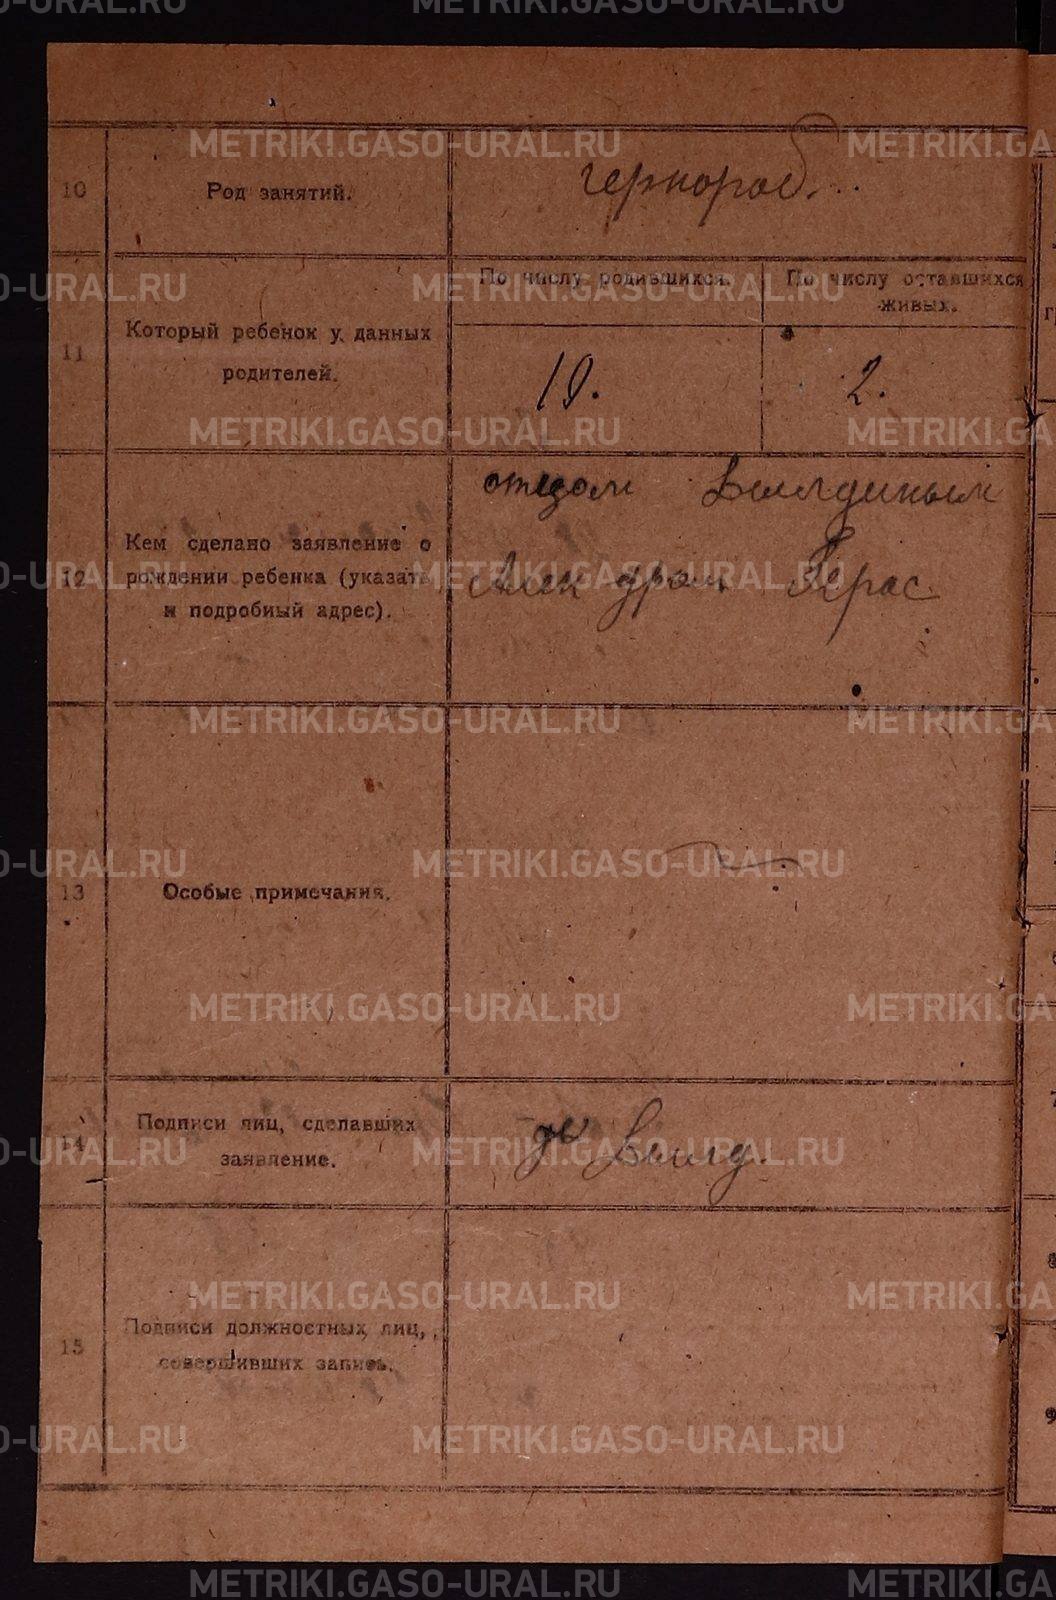 METRIKI.GASO-URAL.RU
10
Род занятий.
чернораб.
11
Который ребенок у данных
родителей.
По числу родившихся.
По числу оставшихся
живых.
10.
2.
12
Кем сделано заявление о
рождении ребенка (указать
и подробный адрес).
отцом
Герас
13
Особые примечания.
14
Подписи лиц, сделавших
заявление.
15
Подписи должностных лиц,
совершивших запись.